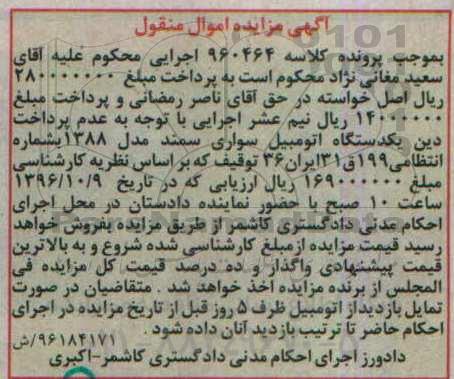 آگهی مزایده اموال منقول
بموجب پرونده کلاسه ۹۶۰۴۶۴ اجرایی محکوم علیه آقای
سعید مغانی نژاد محکوم است به پرداخت مبلغ ۲۸۰۰۰۰۰۰۰
ریال اصل خواسته در حق آقای ناصر رمضانی و پرداخت مبلغ
۱۴۰۰۰۰۰۰ ریال نیم عشر اجرایی با توجه به عدم پرداخت
دین یکدستگاه اتومبیل سواری سمند مدل ۱۳۸۸بشماره
انتظامی۱۹۹ق۳۱ایران۳۶ توقیف که بر اساس نظریه کارشناسی
مبلغ ۱۶۹۰۰۰۰۰۰ ریال ارزیابی که در تاریخ ۱۳۹۶/۱۰/۹
ساعت ۱۰ صبح با حضور نماینده دادستان در محل اجرای
احکام مدنی دادگستری کاشمر از طریق مزایده بفروش خواهد
رسید قیمت مزایده ازمبلغ کارشناسی شده شروع و به بالاترین
قیمت پیشنهادی واگذار و ده درصد قیمت کل مزایده فی
المجلس از برنده مزایده اخذ خواهد شد . متقاضیان در صورت
تمایل بازدیداز اتومبیل ظرف ۵ روز قبل از تاریخ مزایده در اجرای
احکام حاضر تا ترتیب بازدید آنان داده شود .
۹۶۱۸۴۱۷۱/ش
دادورز اجرای احکام مدنی دادگستری کاشمر-اکبری